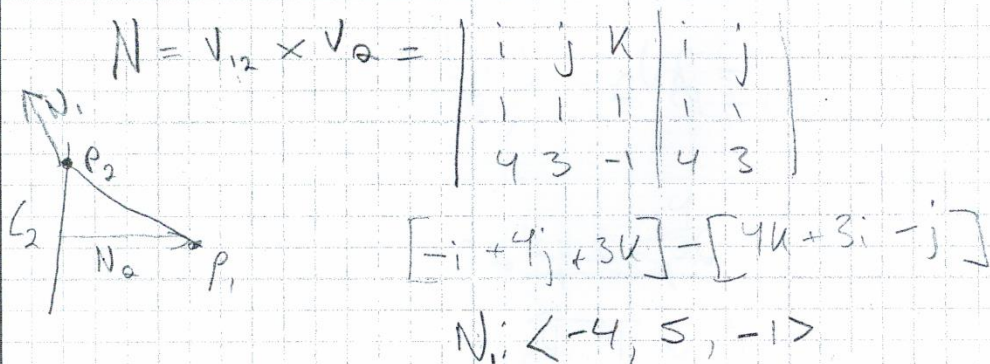 N = V₁₂ × V₂ = | i j K | i j |
| 1 1 1 | 1 1 |
| 4 3 -1 | 4 3 |
N₁
P₂
L₂
N₂
P₁
[-i + 4j + 3K] - [4K + 3i - j]
N₁: < -4, 5, -1 >